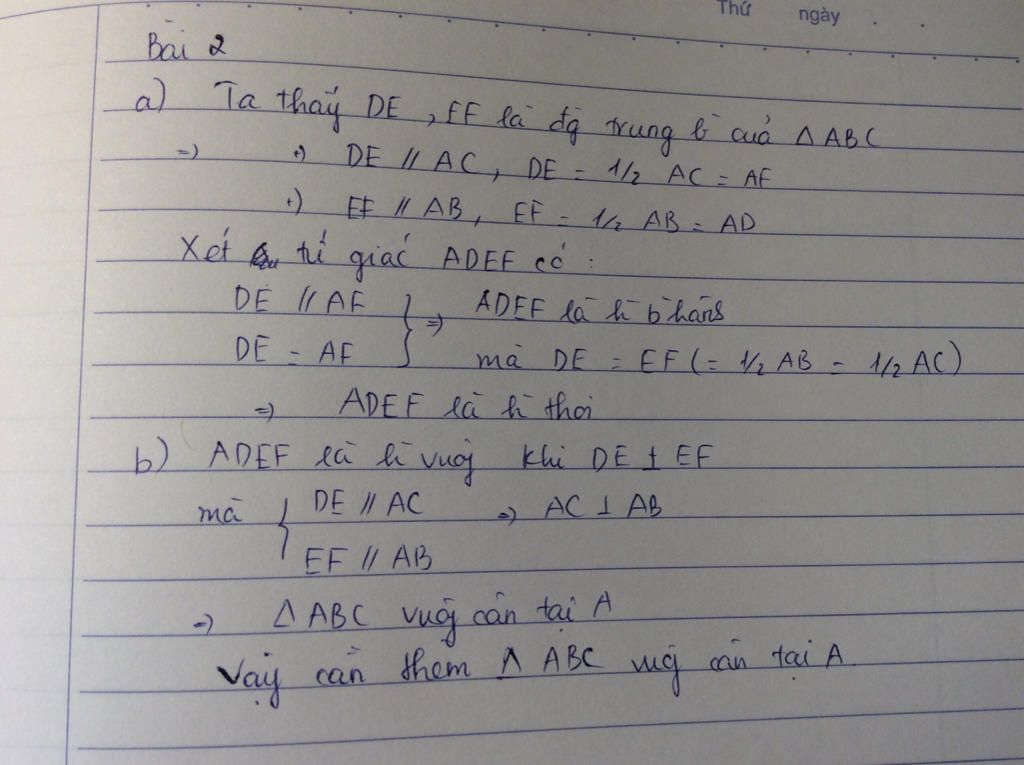 Thứ ngày . .
Bài 2
a) Ta thấy DE, EF là đg trung b̀ của Δ ABC
=> +) DE // AC, DE = 1/2 AC = AF
+) EF // AB, EF = 1/2 AB = AD
Xét tứ giác ADEF có :
DE // AF } => ADEF là h̀ b̀ hành
DE = AF mà DE = EF (= 1/2 AB = 1/2 AC)
=> ADEF là h̀ thoi
b) ADEF là h̀ vuôg khi DE ⊥ EF
mà { DE // AC => AC ⊥ AB
EF // AB
=> Δ ABC vuôg cân tại A
Vậy cần thêm Δ ABC vuôg cân tại A